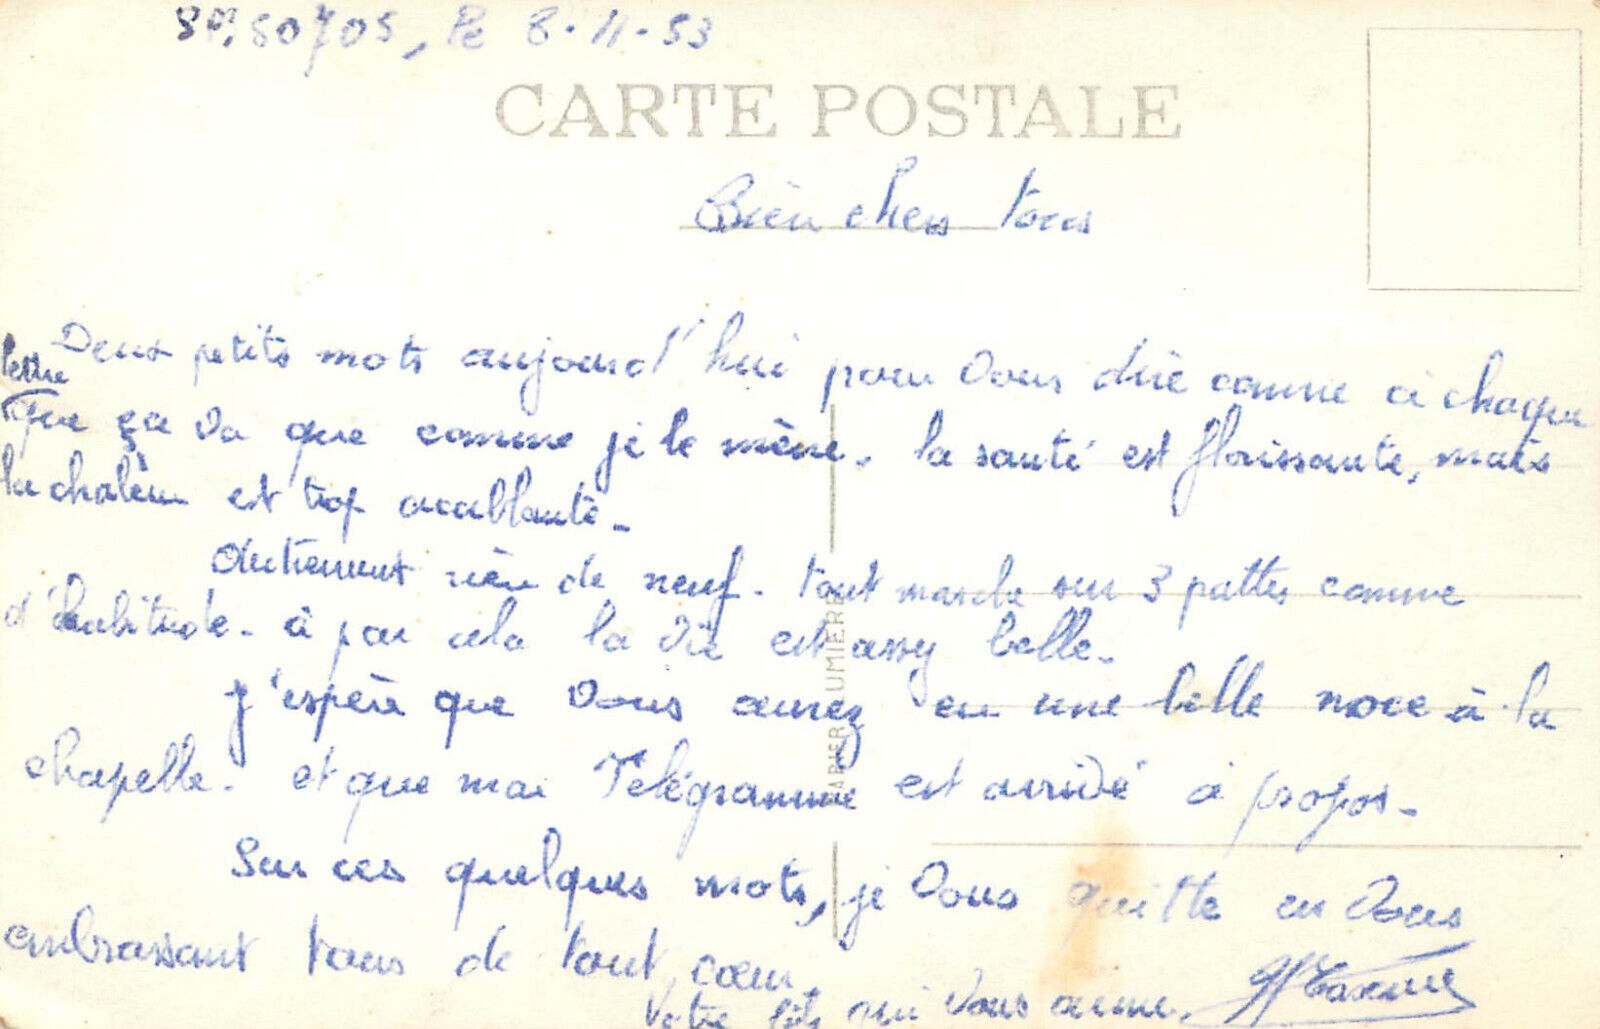 SP. 50705, le 8-11-53
CARTE POSTALE
Bien chers tous
Deux petits mots aujourd'hui pour vous dire comme à chaque
lettre
que ça va que comme je le mène. la santé est florissante, mais
la chaleur est trop accablante.
Autrement rien de neuf. tout marche sur 3 pattes comme
d'habitude. à par cela la vie est assez belle.
J'espère que vous aurez eu une belle noce à la
chapelle. et que mon Télégramme est arrivé à propos.
Sur ces quelques mots, je vous quitte en vous
embrassant tous de tout cœur.
Votre fils qui vous aime.
PAPIER LUMIERE